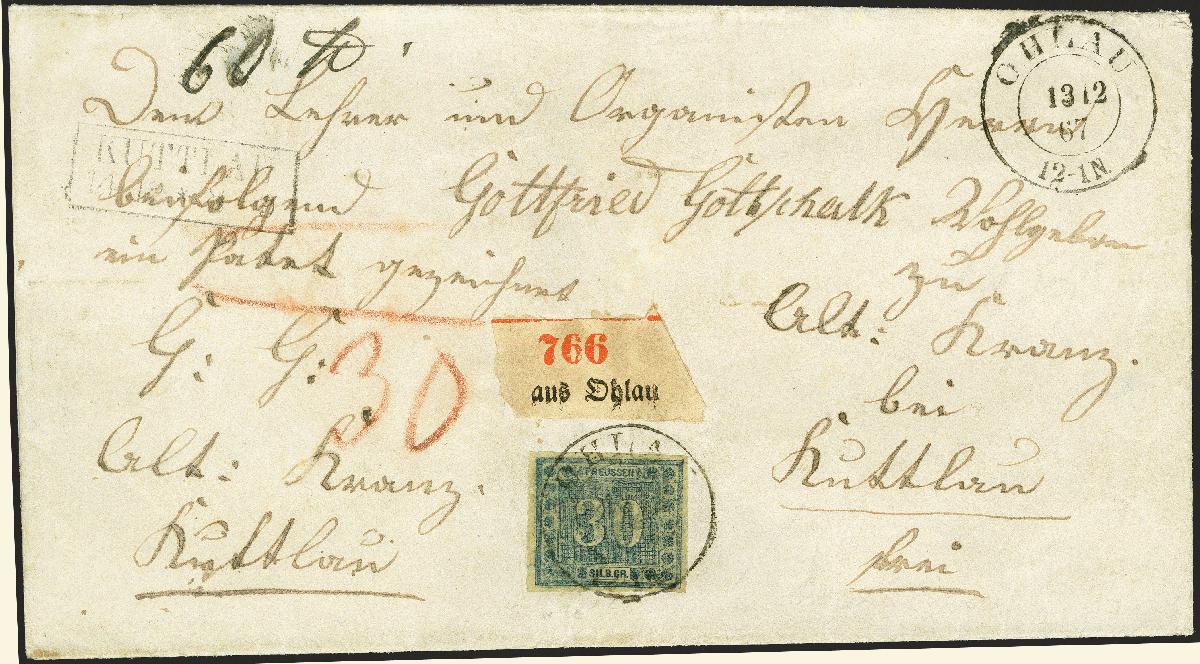 60 ℔
OHLAU
13 12
67
12-1N
Dem Lehrer und Organisten Herrn
KUTTLAU
beifolgend Gottfried Gottschalk Wohlgeboren
ein Paket gezeichnet
zu
G: G:
Alt: Kranz.
30
766
aus Ohlau
bei
Alt: Kranz.
Kuttlau
Kuttlau
frei
OHLA
PREUSSEN
30
SILB.GR.